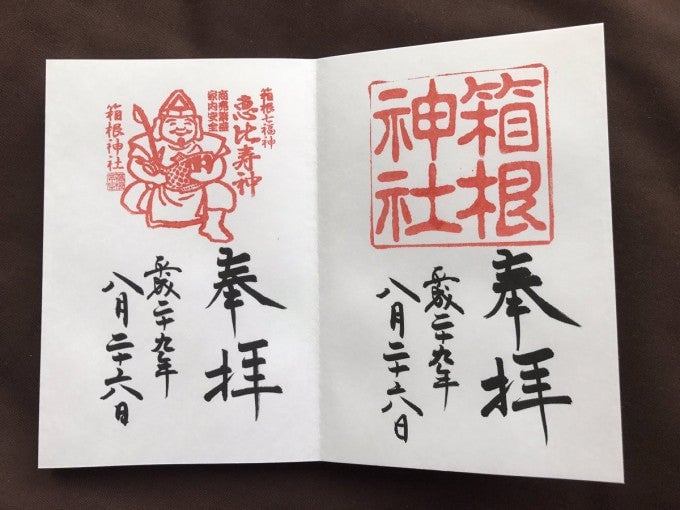 箱根
神社
奉拝
平成二十九年
八月二十六日
箱根七福神
恵比寿神
商売
家内安全
箱根神社
奉拝
平成二十九年
八月二十六日